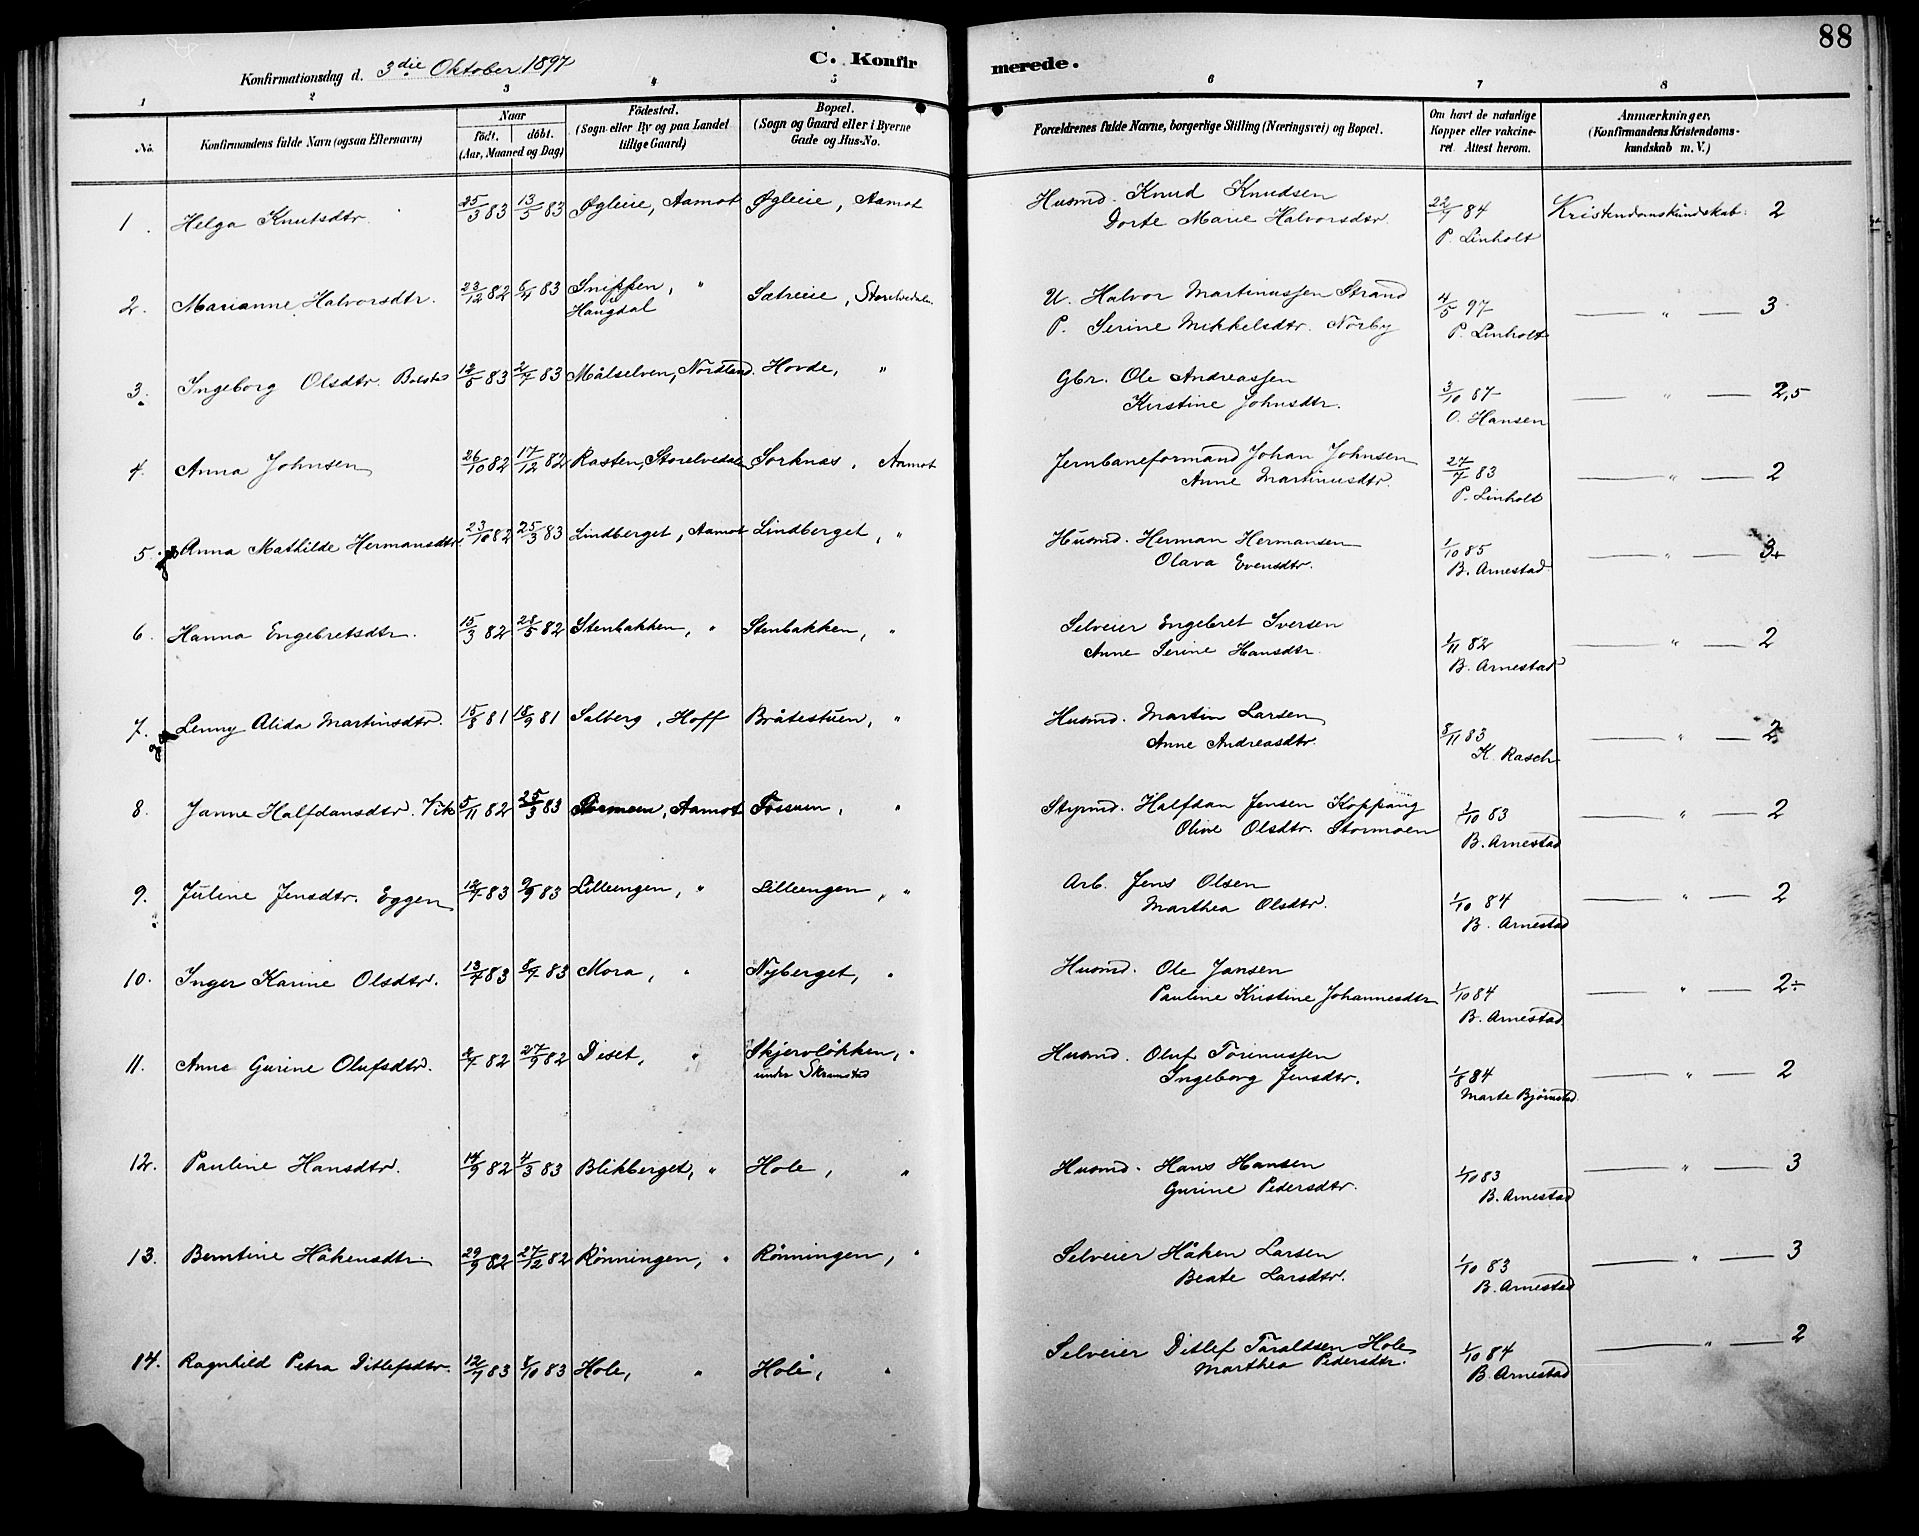 88
Konfirmationsdag d. 3die Oktober 1897
C. Konfirmerede.
1 2 3 4 5 6 7 8
No.
Konfirmandens fulde Navn (ogsaa Efternavn)
Naar
født. døbt.
(Aar, Maaned og Dag)
Fødested.
(Sogn eller By og paa Landet
tillige Gaard)
Bopæl.
(Sogn og Gaard eller i Byerne
Gade og Hus-No.
Forældrenes fulde Navne, borgerlige Stilling (Næringsvei) og Bopæl.
Om havt de naturlige
Kopper eller vakcine-
ret. Attest herom.
Anmærkninger.
(Konfirmandens Kristendoms-
kundskab m. V.)
1. Helga Knutsdtr. 25/3 83 13/5 83 Øgleie, Aamot Øgleie, Aamot Husmd. Knud Knudsen 22/7 84 Kristendomskundskab: 2
Dorte Marie Halvorsdtr. P. Linholt
2. Marianne Halvorsdtr. 23/12 82 6/4 83 Snippen, " Sætreeie, Storelvedalen U. Halvor Martinussen Strand 4/5 97 — " — 3
Haugdal P. Serine Mikkelsdtr. Nørby P. Linholt
3. Ingeborg Olsdtr. Bolstad 12/5 83 2/7 83 Målselven, Nordland. Hovde, " Gbr. Ole Andreassen 3/10 87 — " — 2,5
Kirstine Johnsdtr. O. Hansen
4. Anna Johnsen 26/10 82 17/12 82 Rasten, Storelvedalen Sorknæs, Aamot Jernbaneformand Johan Johnsen 27/7 83 — " — 2
Anne Martinusdtr. P. Linholt
5. Anna Mathilde Hermansdtr. 23/10 82 25/3 83 Lindberget, Aamot Lindberget, " Husmd. Herman Hermansen 1/10 85 — " — 3+
Olava Evensdtr. B. Arnestad
6. Hanna Engebretsdtr. 15/3 82 28/5 82 Stenbakken, " Stenbakken, " Selveier Engebret Iversen 1/11 82 — " — 2
Anne Serine Hansdtr. B. Arnestad
7. Lenny Alida Martinsdtr. 15/8 81 18/9 81 Salberg, Hoff Bråtestuen, " Husmd. Martin Larsen 8/11 83 — " — 2
Anne Andreasdtr. K. Rasch
8. Janne Halfdansdtr. Vik 5/11 82 25/3 83 Aamot Fossum, " Styrmd. Halfdan Jensen Koppang 1/10 83 — " — 2
Oline Olsdtr. Stormoen B. Arnestad
9. Juline Jensdtr. Eggen 12/7 83 9/9 83 Lilleengen, " Lilleengen, " Arb. Jens Olsen 1/10 84 — " — 2
Marthea Olsdtr. B. Arnestad
10. Inger Karine Olsdtr. 13/4 83 8/7 83 Mora, " Nyberget, " Husmd. Ole Jansen 1/10 84 — " — 2÷
Pauline Kristine Johannesdtr B. Arnestad
11. Anne Gurine Olufsdtr. 2/7 82 27/9 82 Deset, " Skjervløkken, " Husmd. Oluf Torinussen 1/8 84 — " — 2
under Skramstad Ingeborg Jensdtr. Marte Bjørnstad
12. Pauline Hansdtr. 14/9 82 4/3 83 Blikberget, " Hole, " Husmd. Hans Hansen 1/10 83 — " — 3
Gurine Pedersdtr. B. Arnestad
13. Berntine Håkensdtr. 29/9 82 27/12 82 Rønningen, " Rønningen, " Selveier Håken Larsen 1/10 83 — " — 3
Beate Larsdtr. B. Arnestad
14. Ragnhild Petra Ditlefsdtr. 12/7 83 8/10 83 Hole, " Hole, " Selveier Ditlef Taraldsen Hole 1/10 84 — " — 2
Marthea Pedersdtr. B. Arnestad